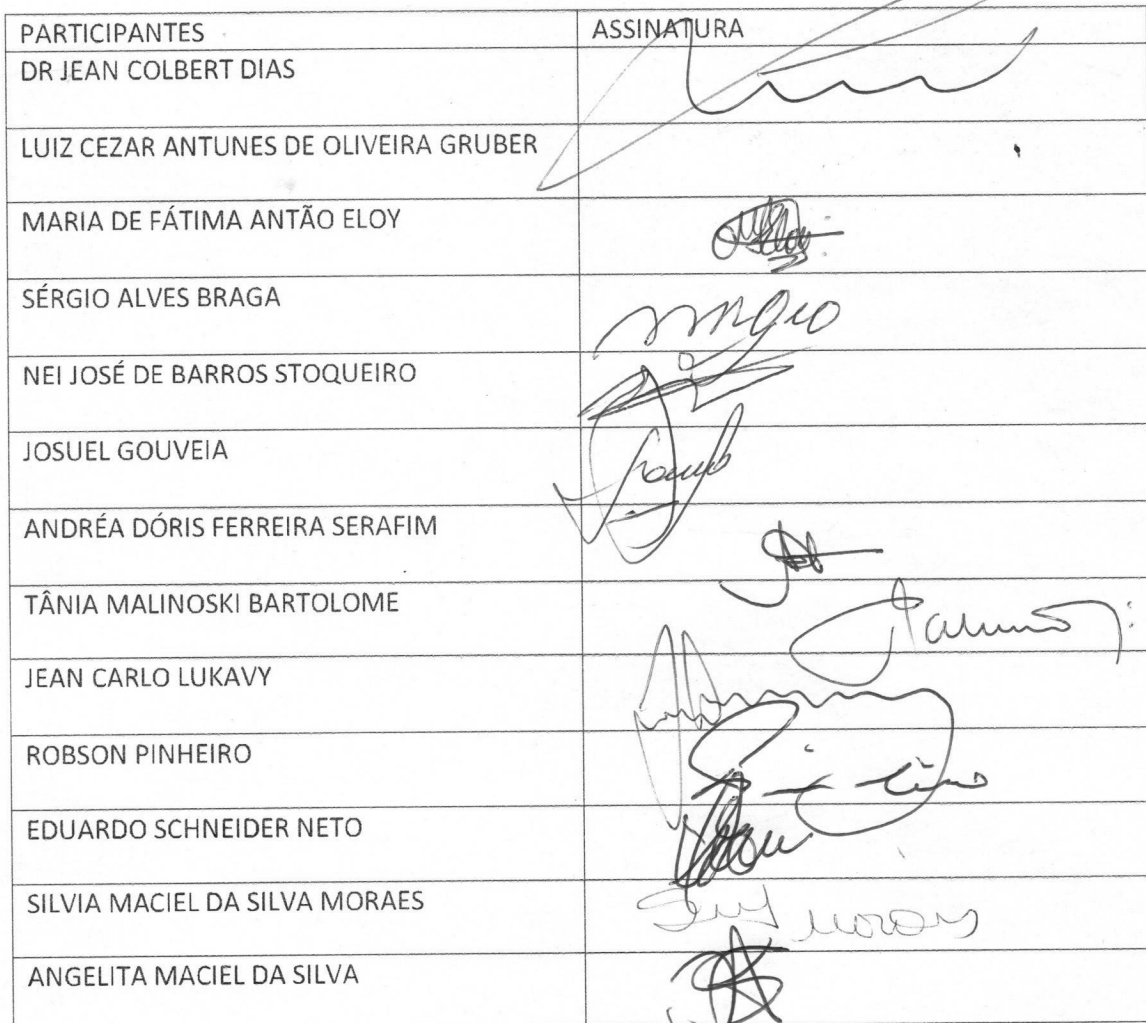 PARTICIPANTES ASSINATURA
DR JEAN COLBERT DIAS
LUIZ CEZAR ANTUNES DE OLIVEIRA GRUBER
MARIA DE FÁTIMA ANTÃO ELOY
SÉRGIO ALVES BRAGA
NEI JOSÉ DE BARROS STOQUEIRO
JOSUEL GOUVEIA
ANDRÉA DÓRIS FERREIRA SERAFIM
TÂNIA MALINOSKI BARTOLOME
JEAN CARLO LUKAVY
ROBSON PINHEIRO
EDUARDO SCHNEIDER NETO
SILVIA MACIEL DA SILVA MORAES
ANGELITA MACIEL DA SILVA